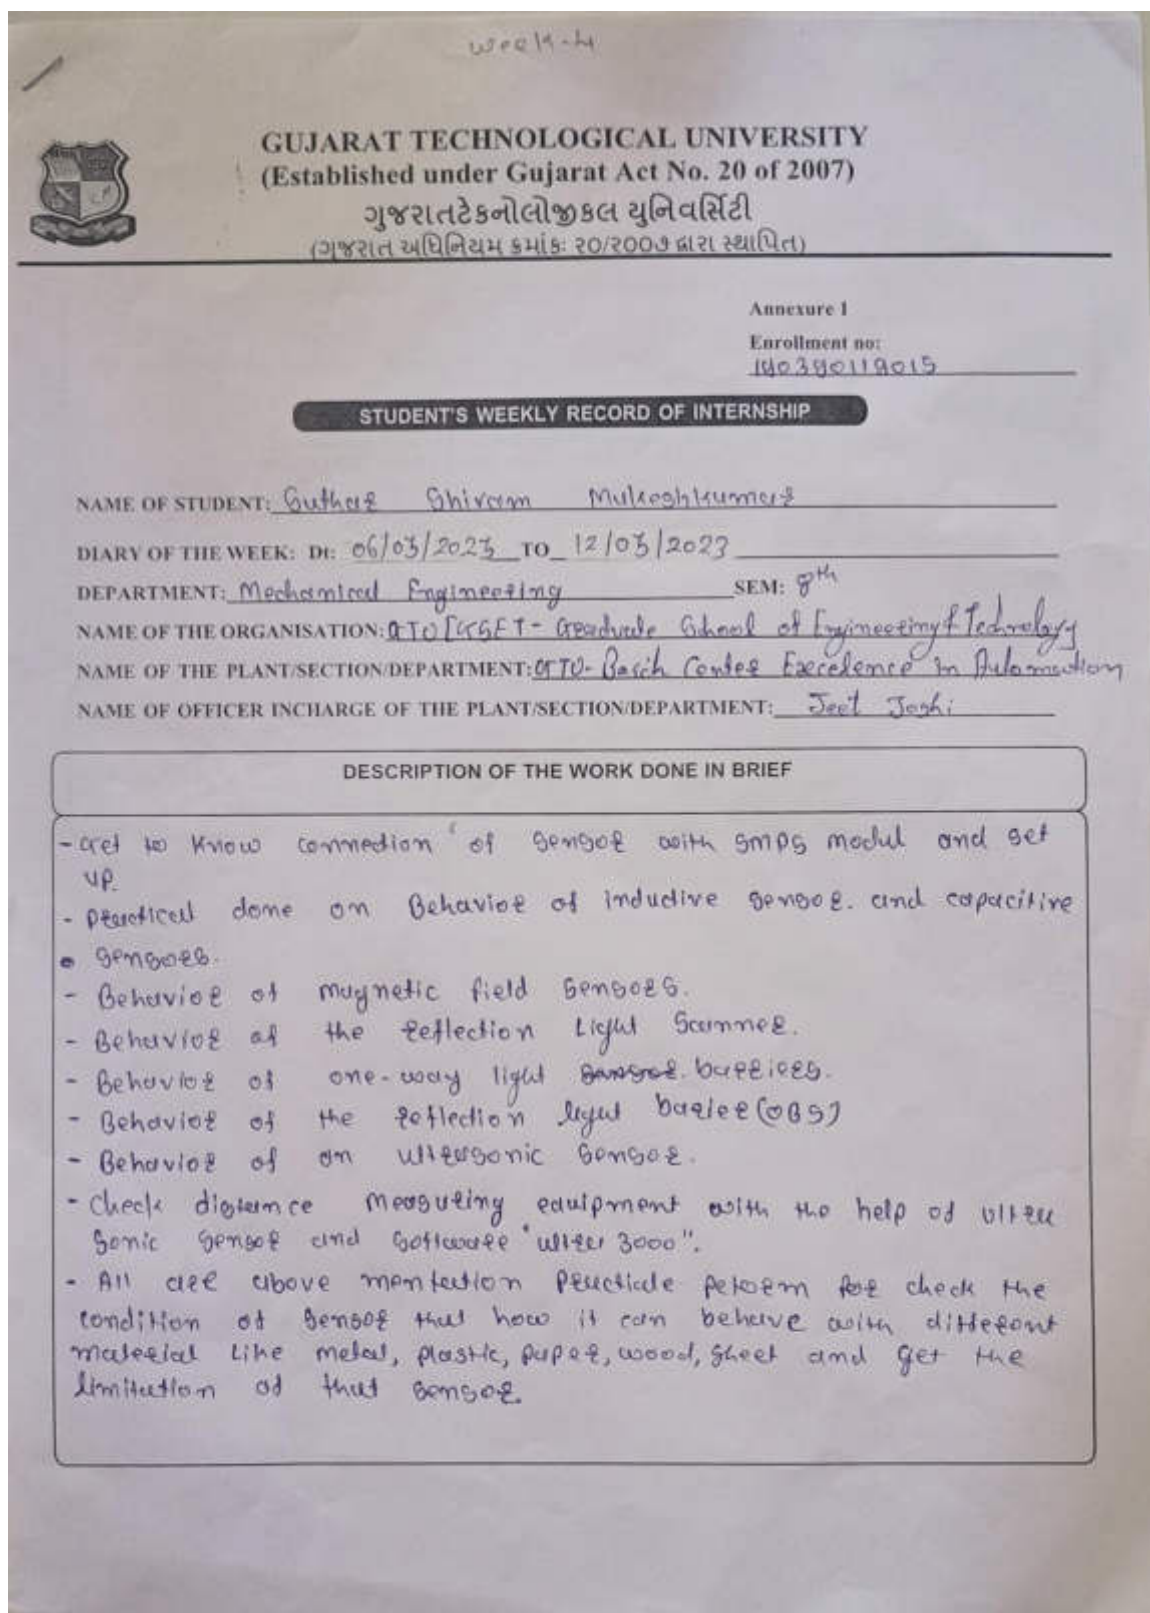 Week-4
GUJARAT TECHNOLOGICAL UNIVERSITY
(Established under Gujarat Act No. 20 of 2007)
ગુજરાતટેકનોલોજીકલ યુનિવર્સિટી
(ગુજરાત અધિનિયમ ક્રમાંકઃ ૨૦/૨૦૦૭ દ્વારા સ્થાપિત)
Annexure 1
Enrollment no:
190390119015
STUDENT'S WEEKLY RECORD OF INTERNSHIP
NAME OF STUDENT: Suthar Shivam Mukeshkumar
DIARY OF THE WEEK: Dt: 06/03/2023 TO 12/03/2023
DEPARTMENT: Mechanical Engineering SEM: 8th
NAME OF THE ORGANISATION: GTU [GSET - Graduate School of Engineering & Technology
NAME OF THE PLANT/SECTION/DEPARTMENT: GTU- Bosch Center Execelence in Automation
NAME OF OFFICER INCHARGE OF THE PLANT/SECTION/DEPARTMENT: Jeet Joshi
DESCRIPTION OF THE WORK DONE IN BRIEF
- Get to know connection of sensor with SMPS modul and set
up.
- practical done on Behavior of inductive sensor. and capacitive
sensors.
- Behavior of magnetic field sensors.
- Behavior of the reflection Light Scanner.
- Behavior of one-way light barriers.
- Behavior of the reflection light barier (OBS)
- Behavior of an ultrasonic sensor.
- Check distance measuring equipment with the help of ultra
sonic sensor and software "ulter 3000".
- All are above mentection practicle peform for check the
condition of sensor that how it can behave with different
material like metal, plastic, paper, wood, sheet and get the
limitation of that sensor.